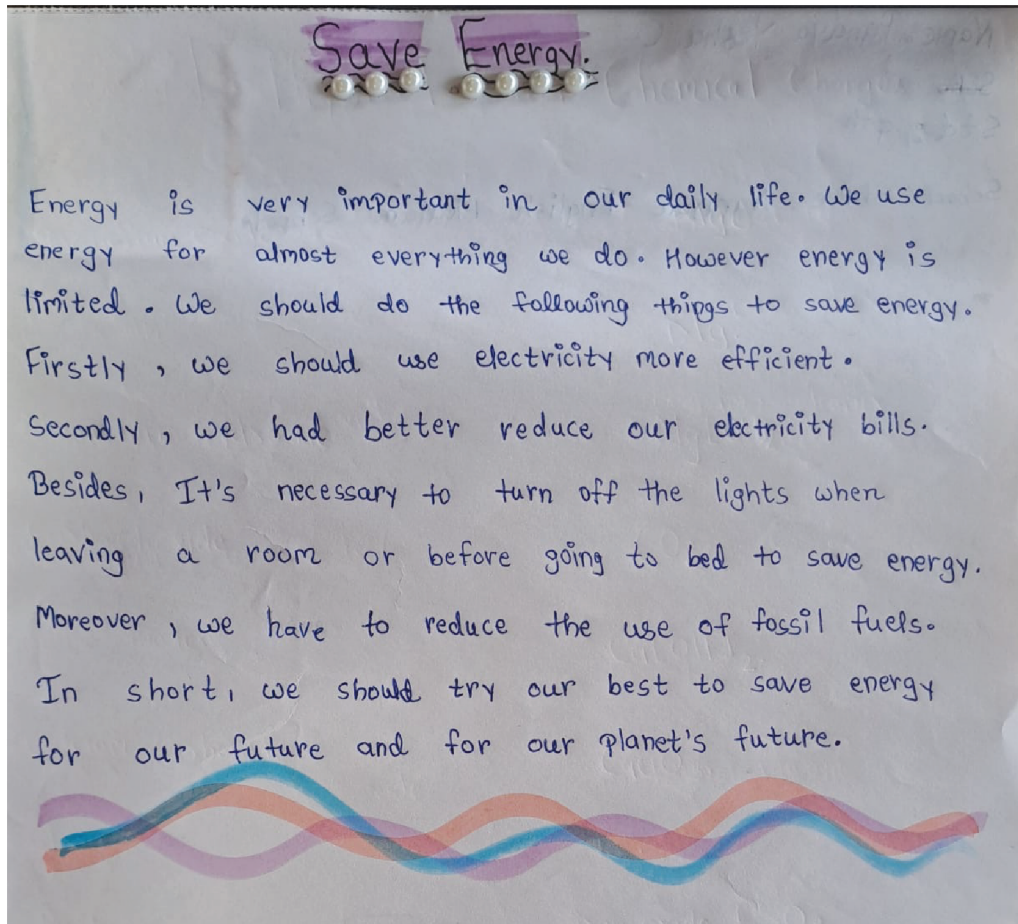 Save Energy.
Energy is very important in our daily life. We use
energy for almost everything we do. However energy is
limited. We should do the following things to save energy.
Firstly, we should use electricity more efficient.
Secondly, we had better reduce our electricity bills.
Besides, It's necessary to turn off the lights when
leaving a room or before going to bed to save energy.
Moreover, we have to reduce the use of fossil fuels.
In short, we should try our best to save energy
for our future and for our planet's future.